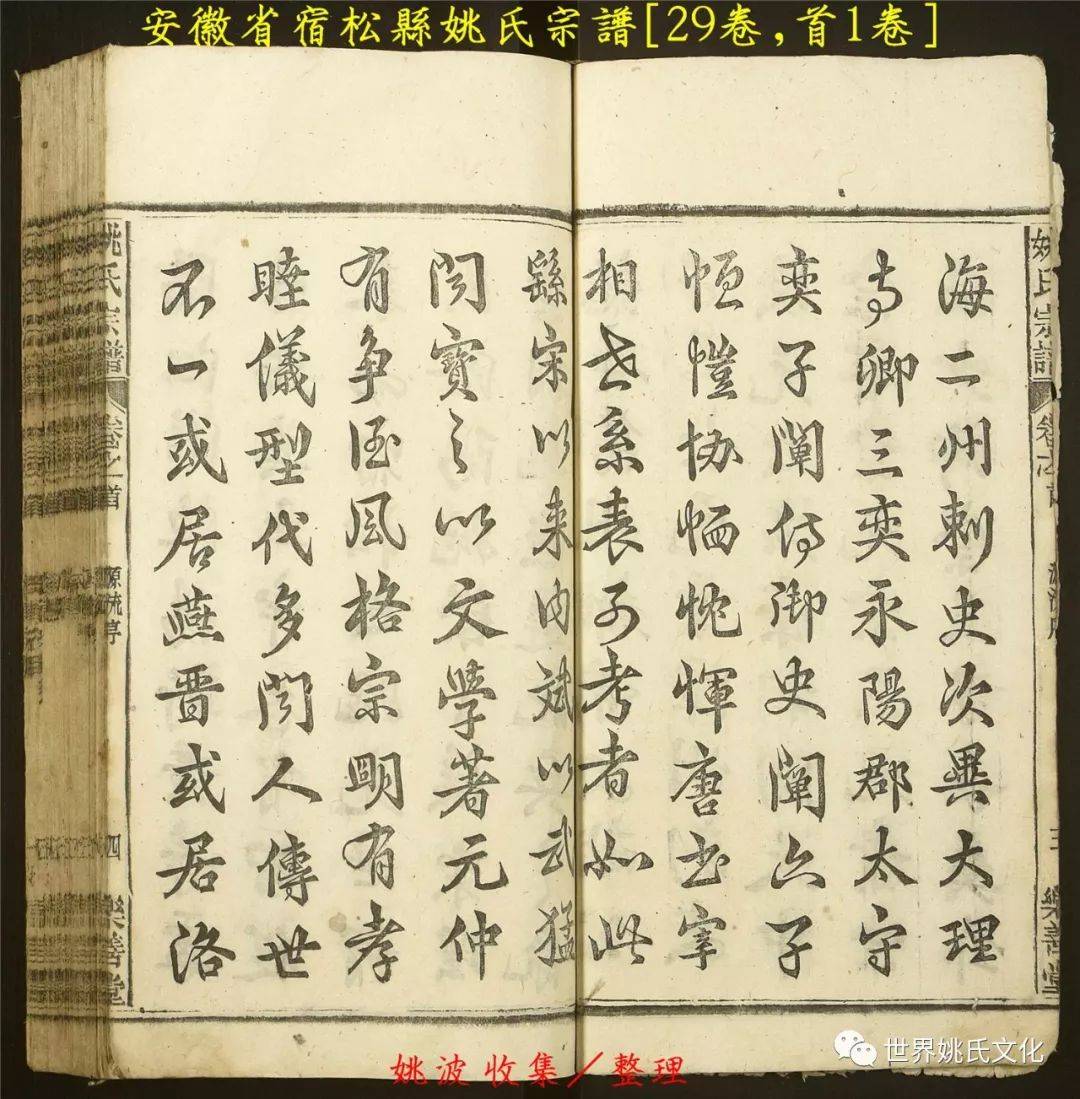 安徽省宿松縣姚氏宗譜[29卷,首1卷]
姚氏宗譜
樂善堂
海二州刺史次異大理
寺卿三奕永陽郡太守
奕子闡侍御史闡六子
恆愷協愐悦惲唐書宰
相世系表可考者如此
繇宋以来內斌以武猛
闵寶之以文學著元仲
有爭酒風格宗明有孝
睦儀型代多闻人傳世
不一或居燕晉或居洛
姚氏宗譜
卷之首
源流序
四
樂善堂
姚波收集/整理
世界姚氏文化